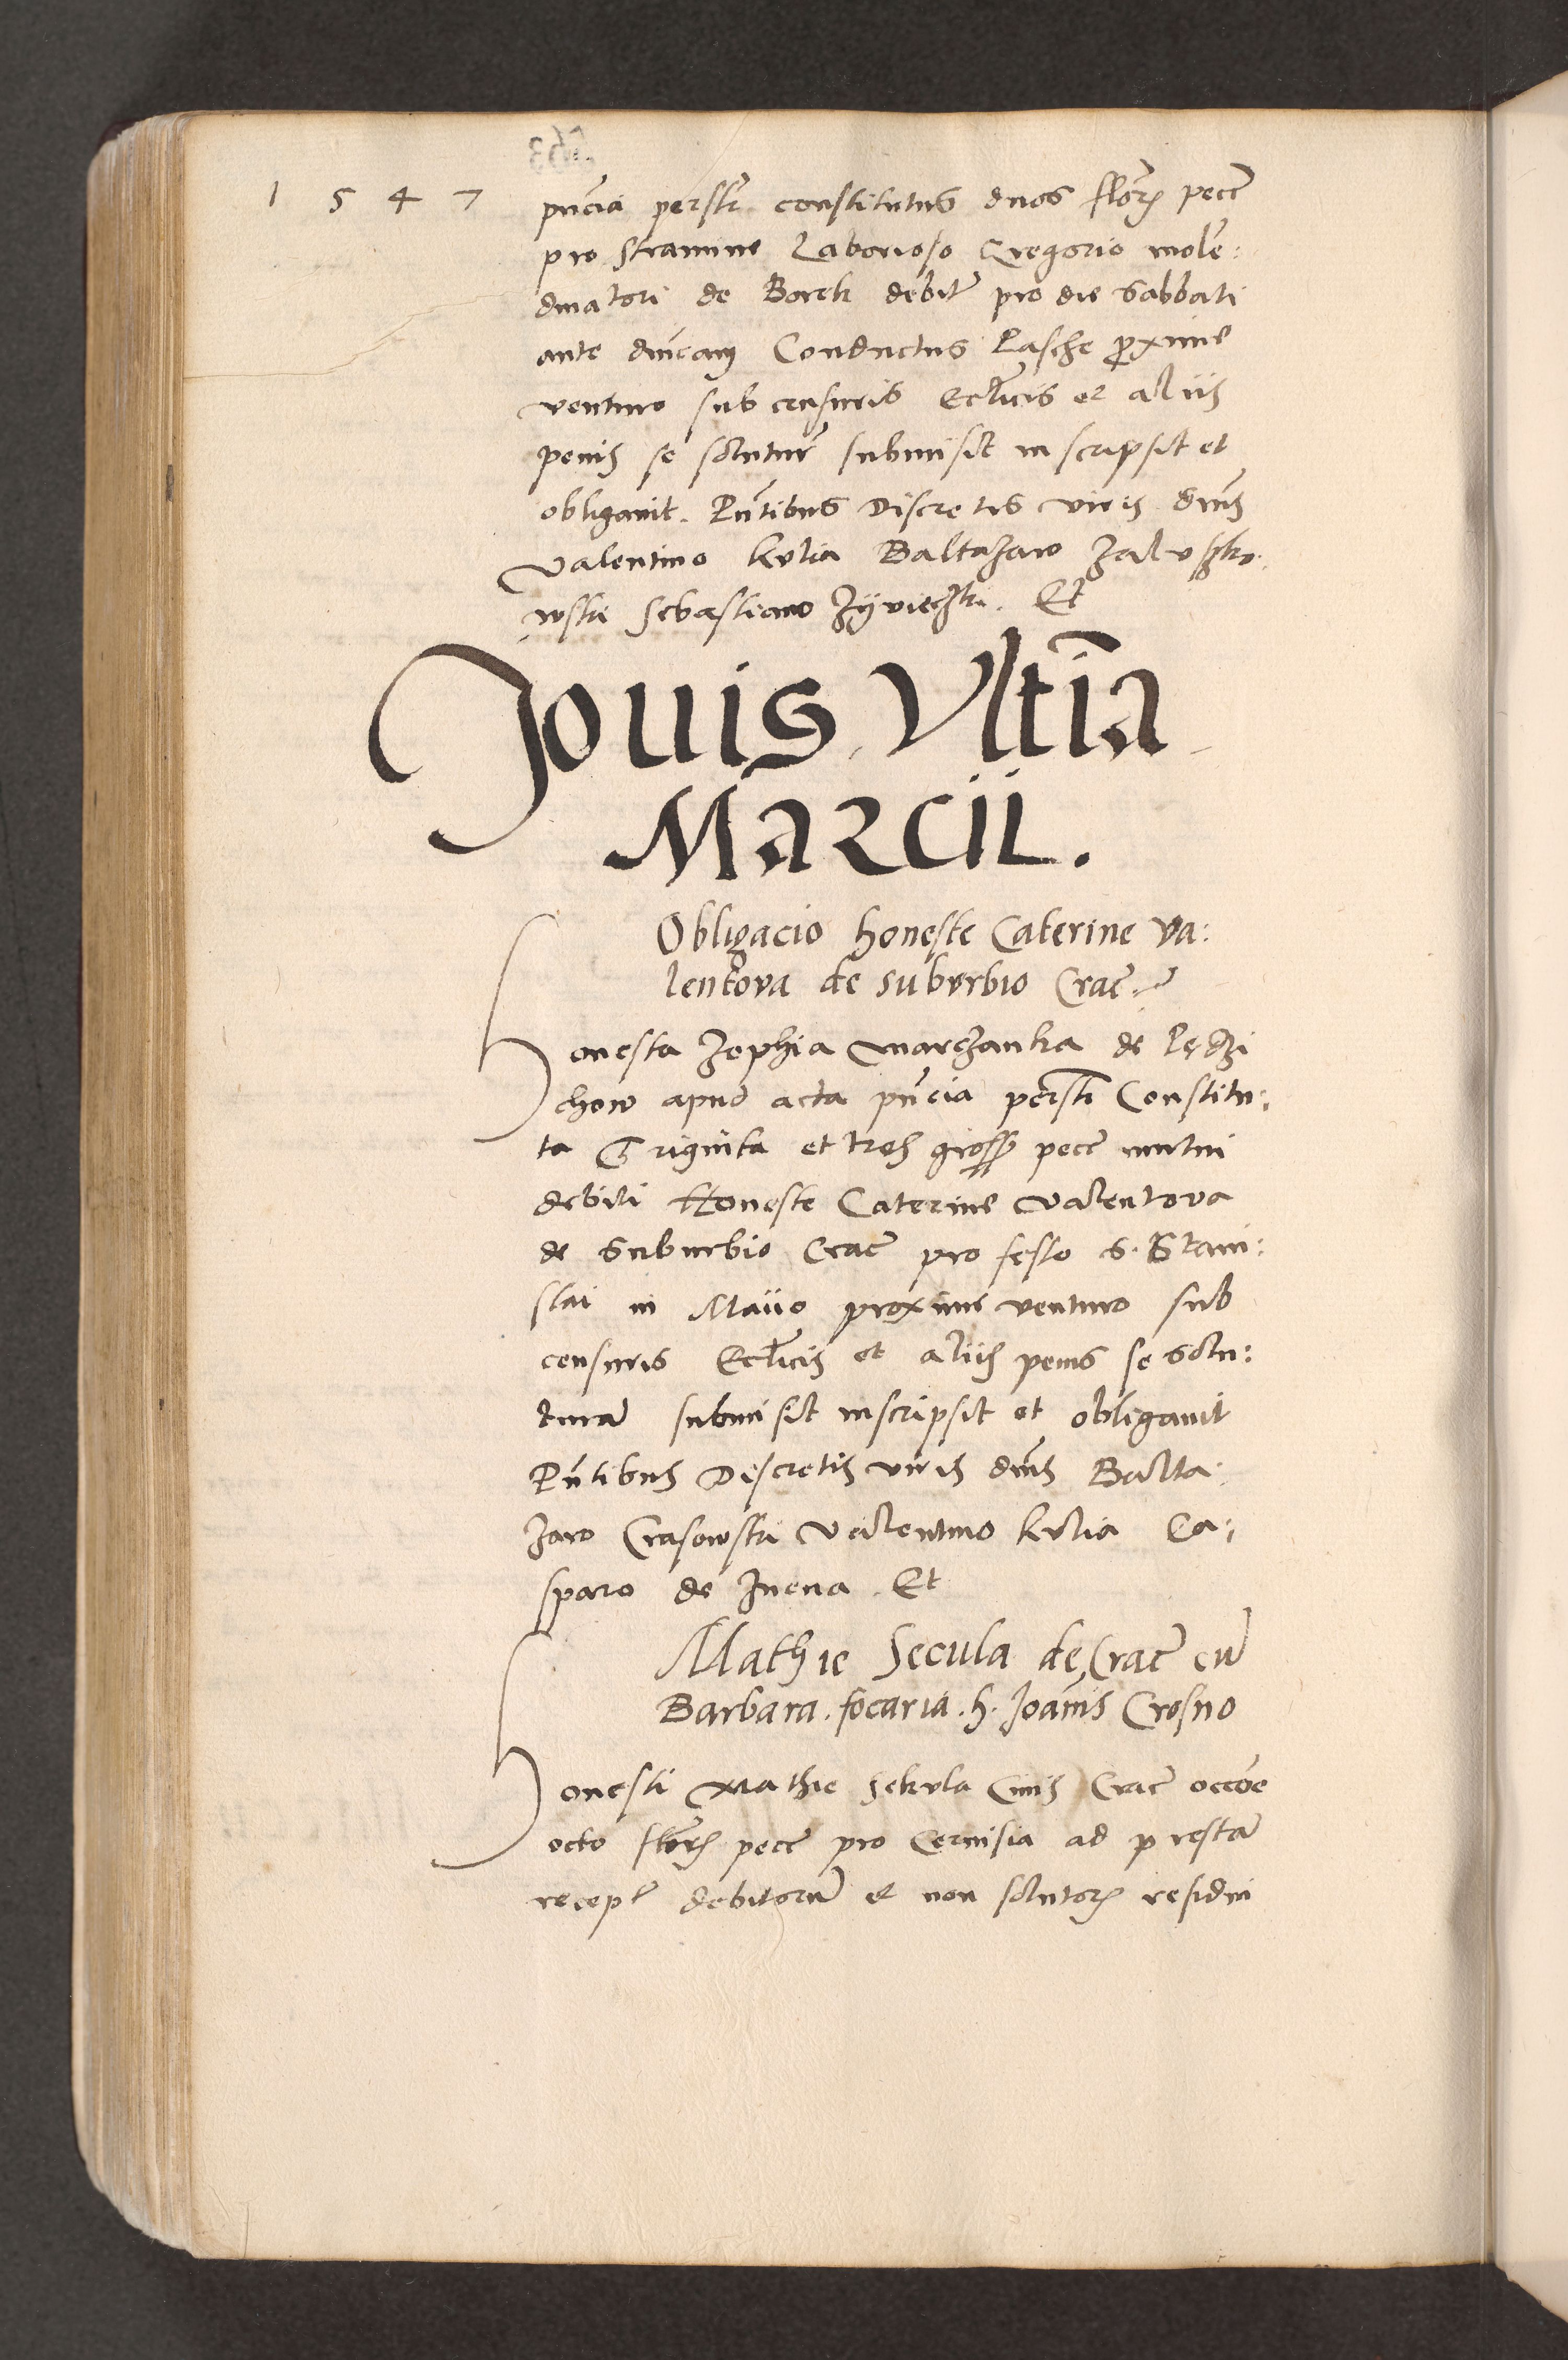 1 5 4 7
pn̄cia perslr̄ constitutus duos flor̄ pecc̄
pro stramine Laborioso Gregorio mole:
dinatori de Borek debit̄ pro die Sabbati
ante dn̄cam Conductus Pasche proxime
venturo sub censuris Eccl̄icis et aliis
penis se solutur̄ submisit inscripsit et
obligavit. Pn̄tibus Discretis viris dn̄is
Valentino kvlia Baltazaro
wski Sebastiano Et
Jouis Vltīa
Marcii.
Obligacio honeste Caterine Va:
lentova de subvrbio Crac̄
Honesta Zophia marczanka de Lędzi
chow apud acta pn̄cia persl̄r Constitu:
ta Triginta et tres gross pecc̄ mutui
debiti Honeste Caterine Valentova
de Suburbio Crac̄ pro festo S. Stani:
slai in Maiio proxime venturo sub
censuris Eccl̄icis et aliis penis se solu:
turā submisit inscripsit et obligavit
Pn̄tibus Discretis viris dn̄is Balta:
zaro Crasowski Valentino kvlia Ca:
sparo de Et
Mathie Secula de Crac̄ cū
Barbara. focaria. h. Joānis Crosno
Honesti Mathie Sekvla Civis Crac̄ occōe
octo flor̄ pecc̄ pro Cervisia ad prestā
recep̄ debitorū et non solutor̄ residui